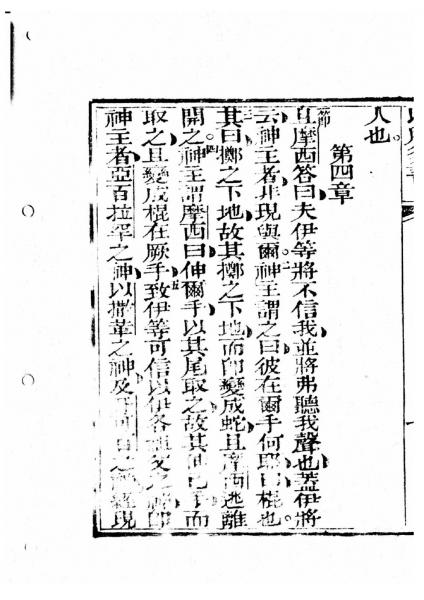 人也。
第四章
節且摩西答曰夫伊等將不信我並將弗聽我聲也蓋伊將
云神主者非現與爾。二神主謂之曰彼在爾手何耶曰棍也。
三其曰擲之下地故其擲之下地而卽變成蛇且摩西逃離
開之。四神主謂摩西曰伸爾手以其尾取之故其伸己手而
取之且變成棍在厥手五致伊等可信以伊各祖父之神卽
神主者亞百拉罕之神以撒革之神及可百之神現